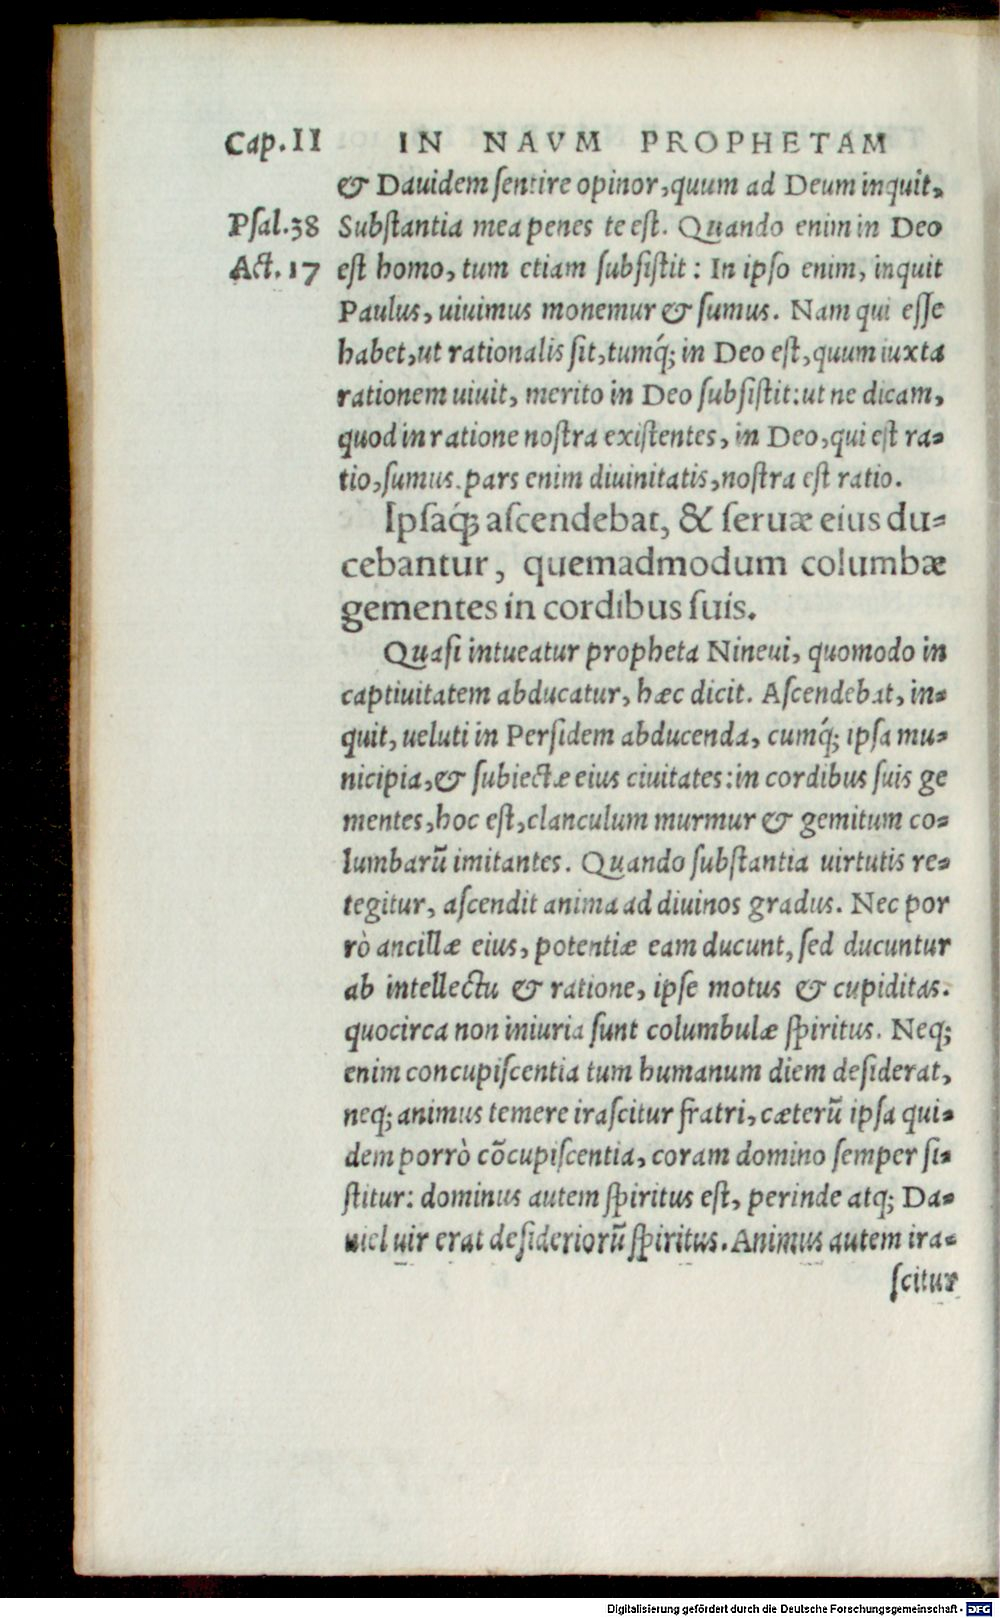 Cap. II IN NAVM PROPHETAM
& Dauidem ſentire opinor, quum ad Deum inquit,
Pſal. 38 Subſtantia mea penes te eſt. Quando enim in Deo
Act. 17 eſt homo, tum etiam ſubſiſtit : In ipſo enim, inquit
Paulus, uiuimus monemur & ſumus. Nam qui eſſe
habet, ut rationalis ſit, tumq́; in Deo eſt, quum iuxta
rationem uiuit, merito in Deo ſubſiſtit: ut ne dicam,
quod in ratione noſtra exiſtentes, in Deo, qui eſt ra-
tio, ſumus. pars enim diuinitatis, noſtra eſt ratio.
Ipſaq́; aſcendebat, & ſeruæ eius du-
cebantur, quemadmodum columbæ
gementes in cordibus ſuis.
Quaſi intueatur propheta Nineui, quomodo in
captiuitatem abducatur, hæc dicit. Aſcendebat, in-
quit, ueluti in Perſidem abducenda, cumq́; ipſa mu-
nicipia, & ſubiectæ eius ciuitates: in cordibus ſuis ge
mentes, hoc eſt, clanculum murmur & gemitum co-
lumbarũ imitantes. Quando ſubſtantia uirtutis re-
tegitur, aſcendit anima ad diuinos gradus. Nec por
rò ancillæ eius, potentiæ eam ducunt, ſed ducuntur
ab intellectu & ratione, ipſe motus & cupiditas.
quocirca non iniuria ſunt columbulæ ſpiritus. Neq;
enim concupiſcentia tum humanum diem deſiderat,
neq; animus temere iraſcitur fratri, cæterũ ipſa qui-
dem porrò cõcupiſcentia, coram domino ſemper ſi-
ſtitur: dominus autem ſpiritus eſt, perinde atq; Da-
niel uir erat deſideriorũ ſpiritus. Animus autem ira-
ſcitur
Digitalisierung gefördert durch die Deutsche Forschungsgemeinschaft - DFG